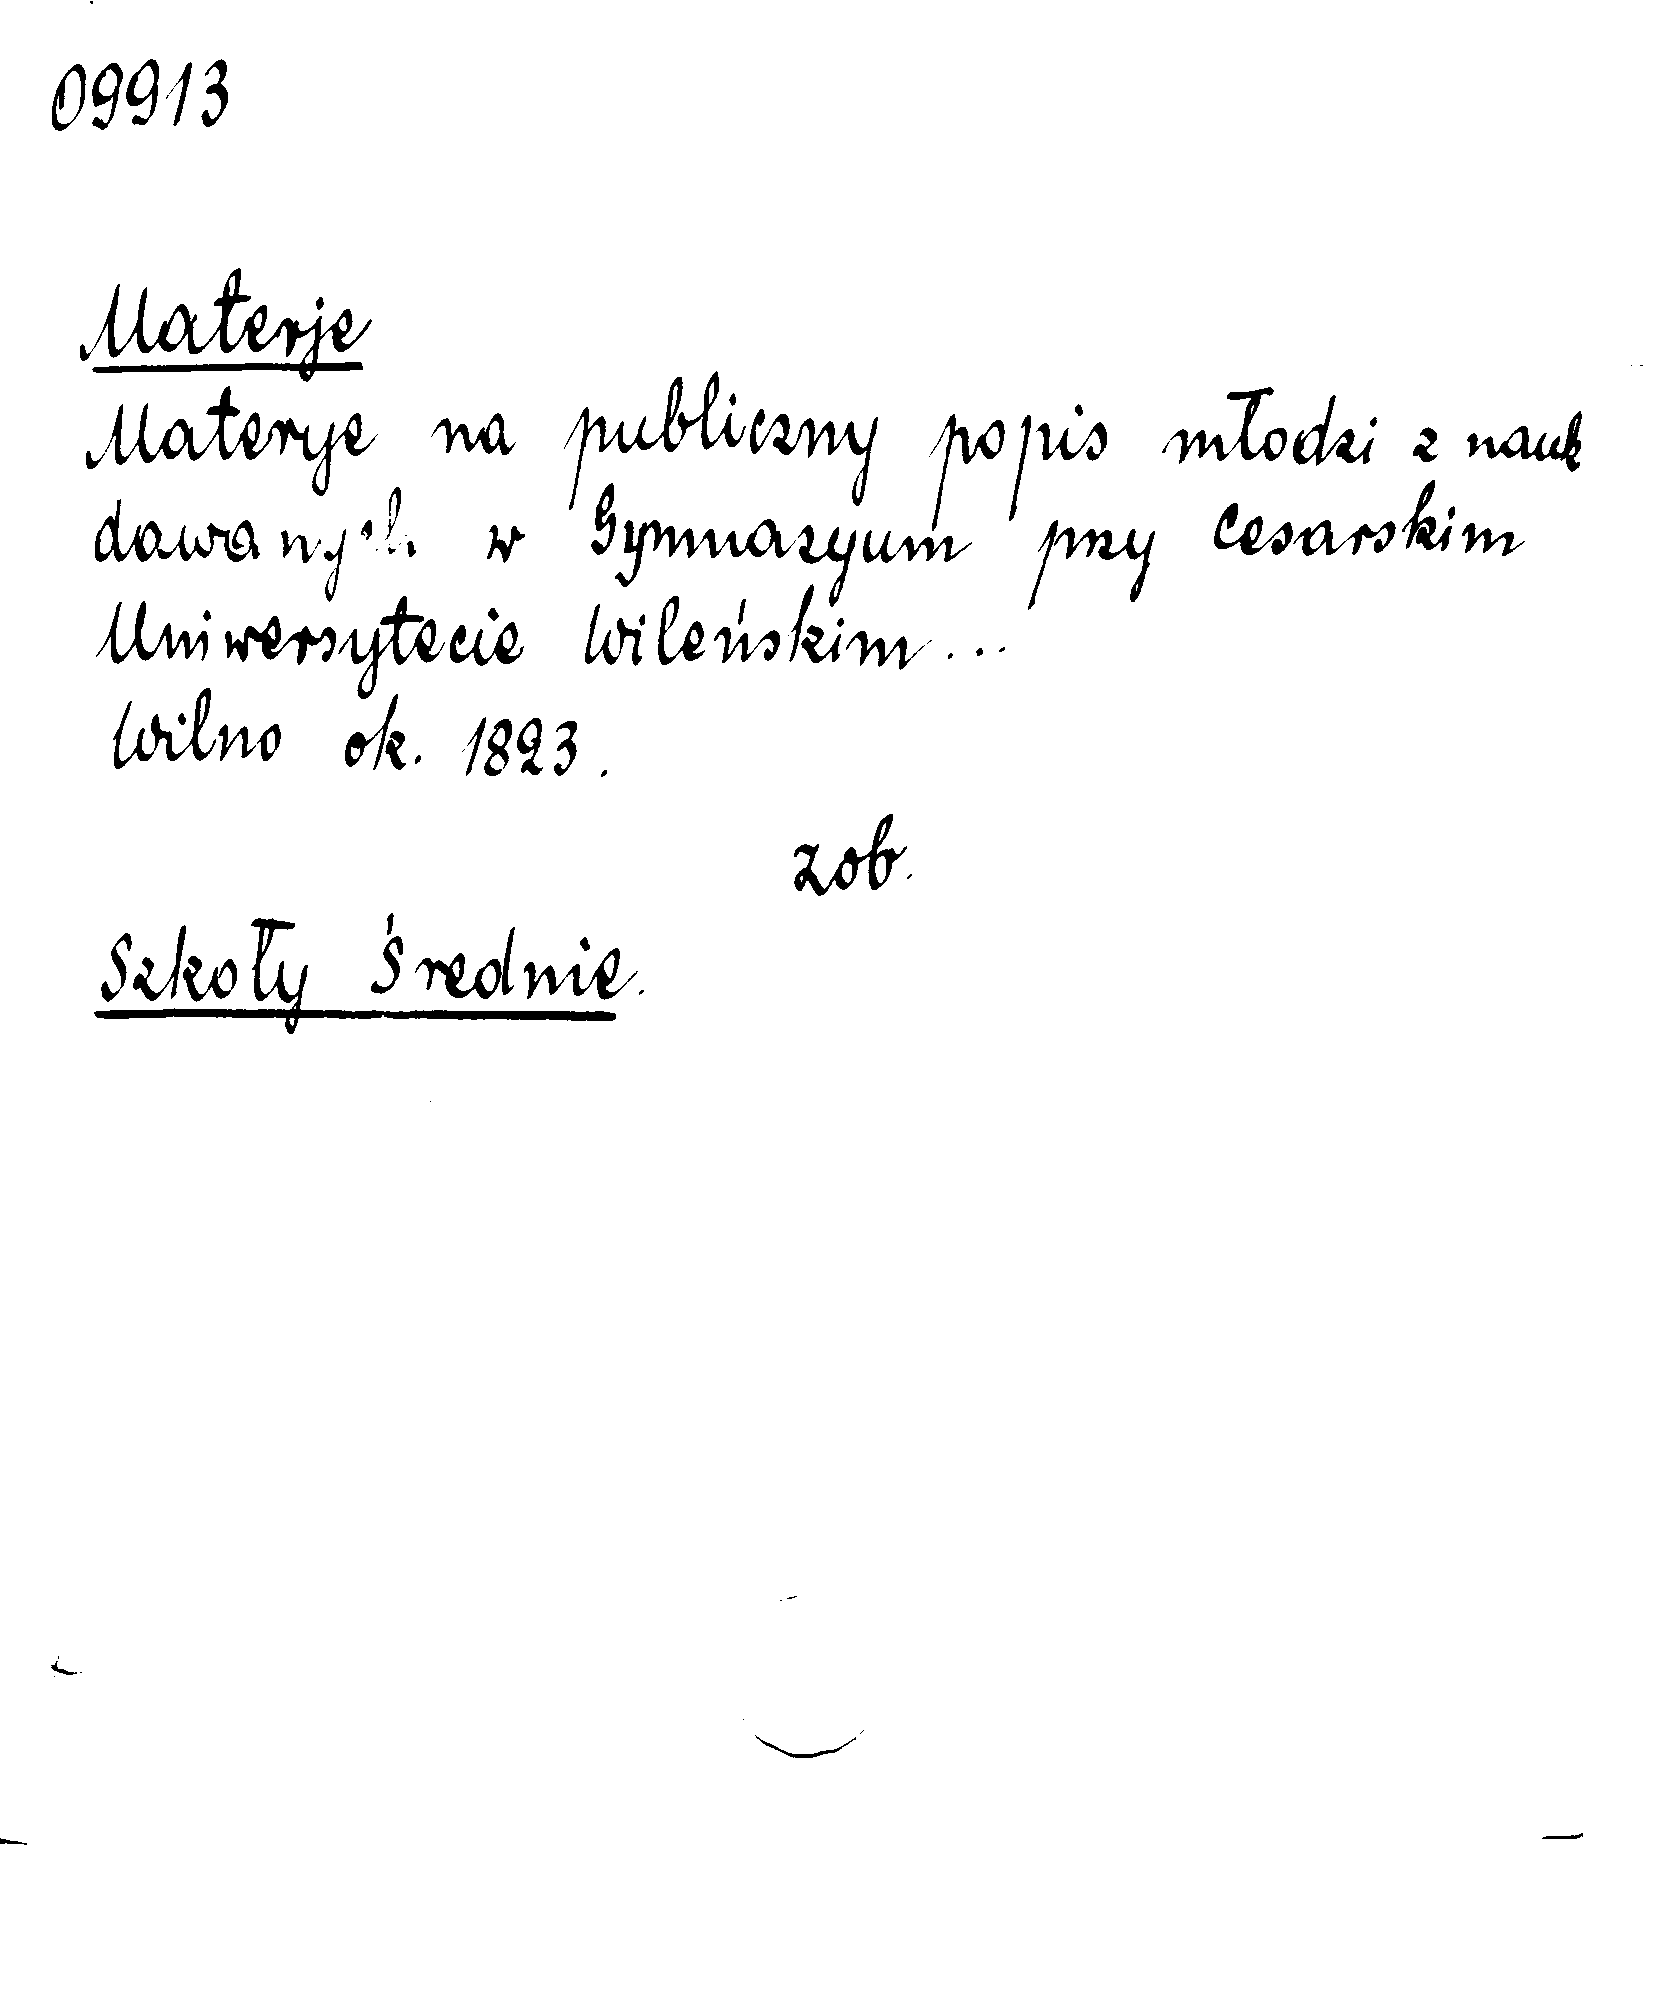 09913
Materje
Materye na publiczny popis młodzi z nauk
dawanych w Gymnazyum przy Cesarskim
Uniwersytecie Wileńskim...
Wilno ok. 1823.
zob.
Szkoły Średnie.